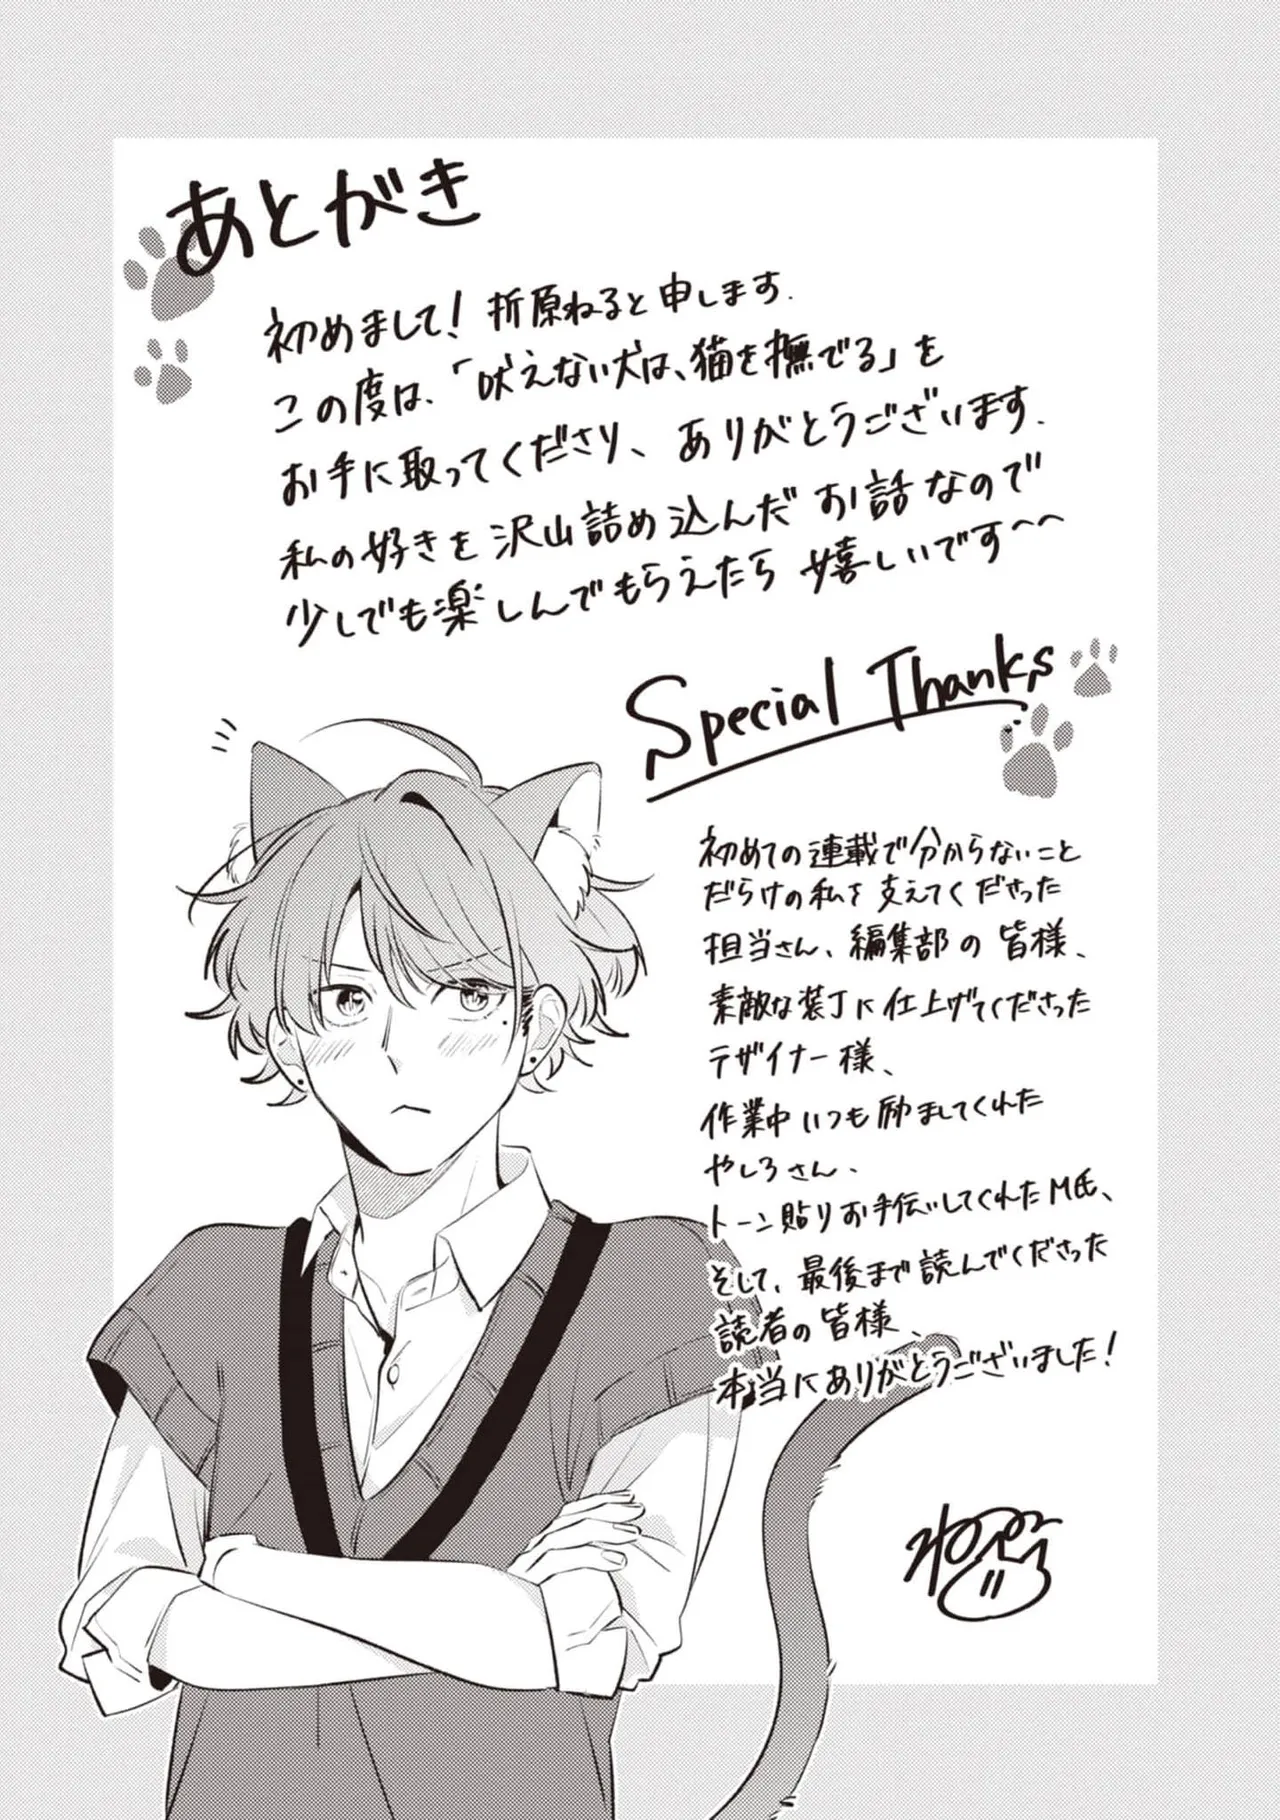 あとがき
初めまして！折原ねると申します．
この度は、「吠えない犬は、猫を撫でる」を
お手に取ってくださり、ありがとうございます．
私の好きを沢山詰め込んだお話なので
少しでも楽しんでもらえたら嬉しいです～～
Special Thanks
初めての連載で分からないこと
だらけの私を支えてくださった
担当さん、編集部の皆様、
素敵な装丁に仕上げてくださった
デザイナー様、
作業中いつも励ましてくれた
やしろさん、
トーン貼りお手伝いしてくれたM氏、
そして、最後まで読んでくださった
読者の皆様、
本当にありがとうございました！